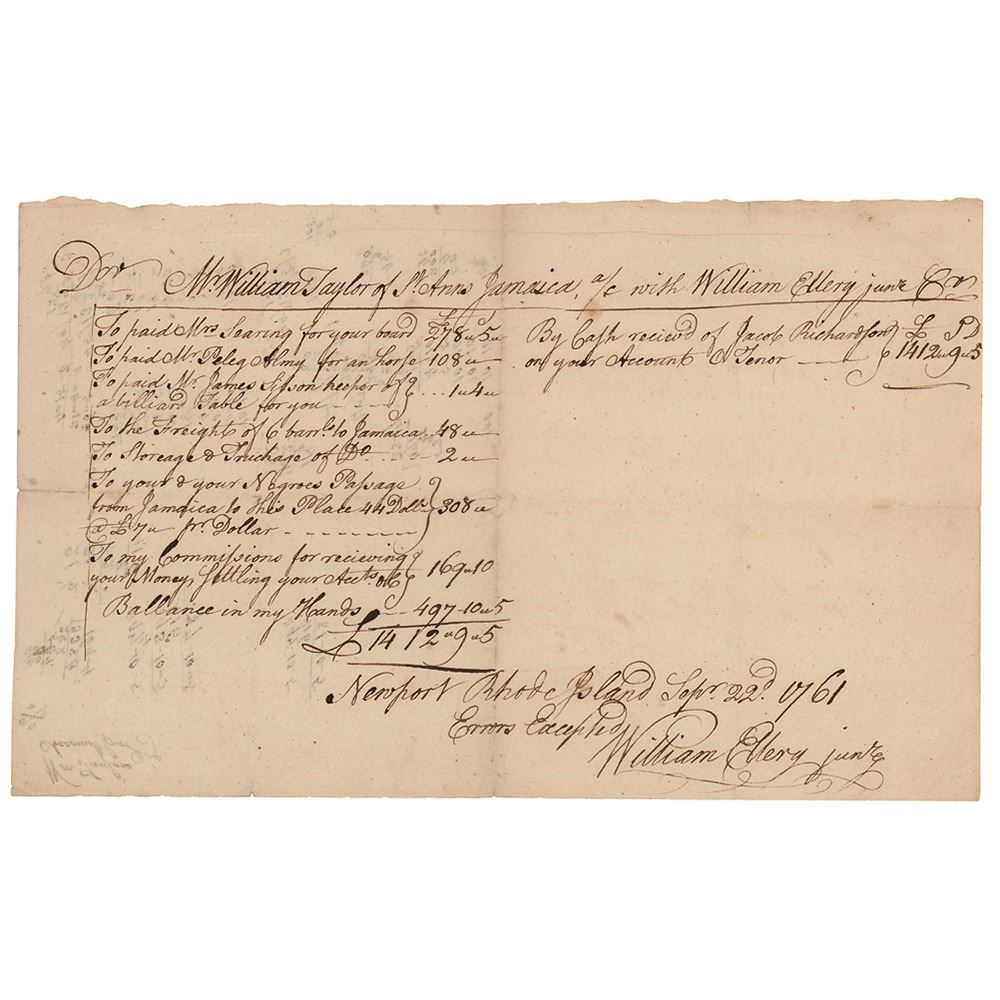 Dr Mr William Taylor of St Anns Jamaica, a/c with William Ellery junr Cr
£
To paid Mrs Searing for your board 278 " 5 "
To paid Mr Peleg Almy for an horse 108 "
To paid Mr James Sisson keeper of
a billiard Table for you - - - - } ... 1 " 4 "
To the Freight of 6 barrls to Jamaica 48 "
To Storeage & Truckage of Do ... - 2 "
To your & your Negroes Passage
from Jamaica to this Place 44 Dollrs } 308 "
@ £7 " pr. Dollar - - - - - - -
To my Commissions for recieving
your Money, settling your Accts &c } 169 " 10
Ballance in my Hands - - 497 - 10 " 5
£ 1412 " 9 " 5
By Cash reciev'd of Jacob Richardson } £ S D
on your Account O Tenor - - - 1412 " 9 " 5
Newport Rhode Island Sepr 22d. 1761
Errors Excepted
William Ellery junr